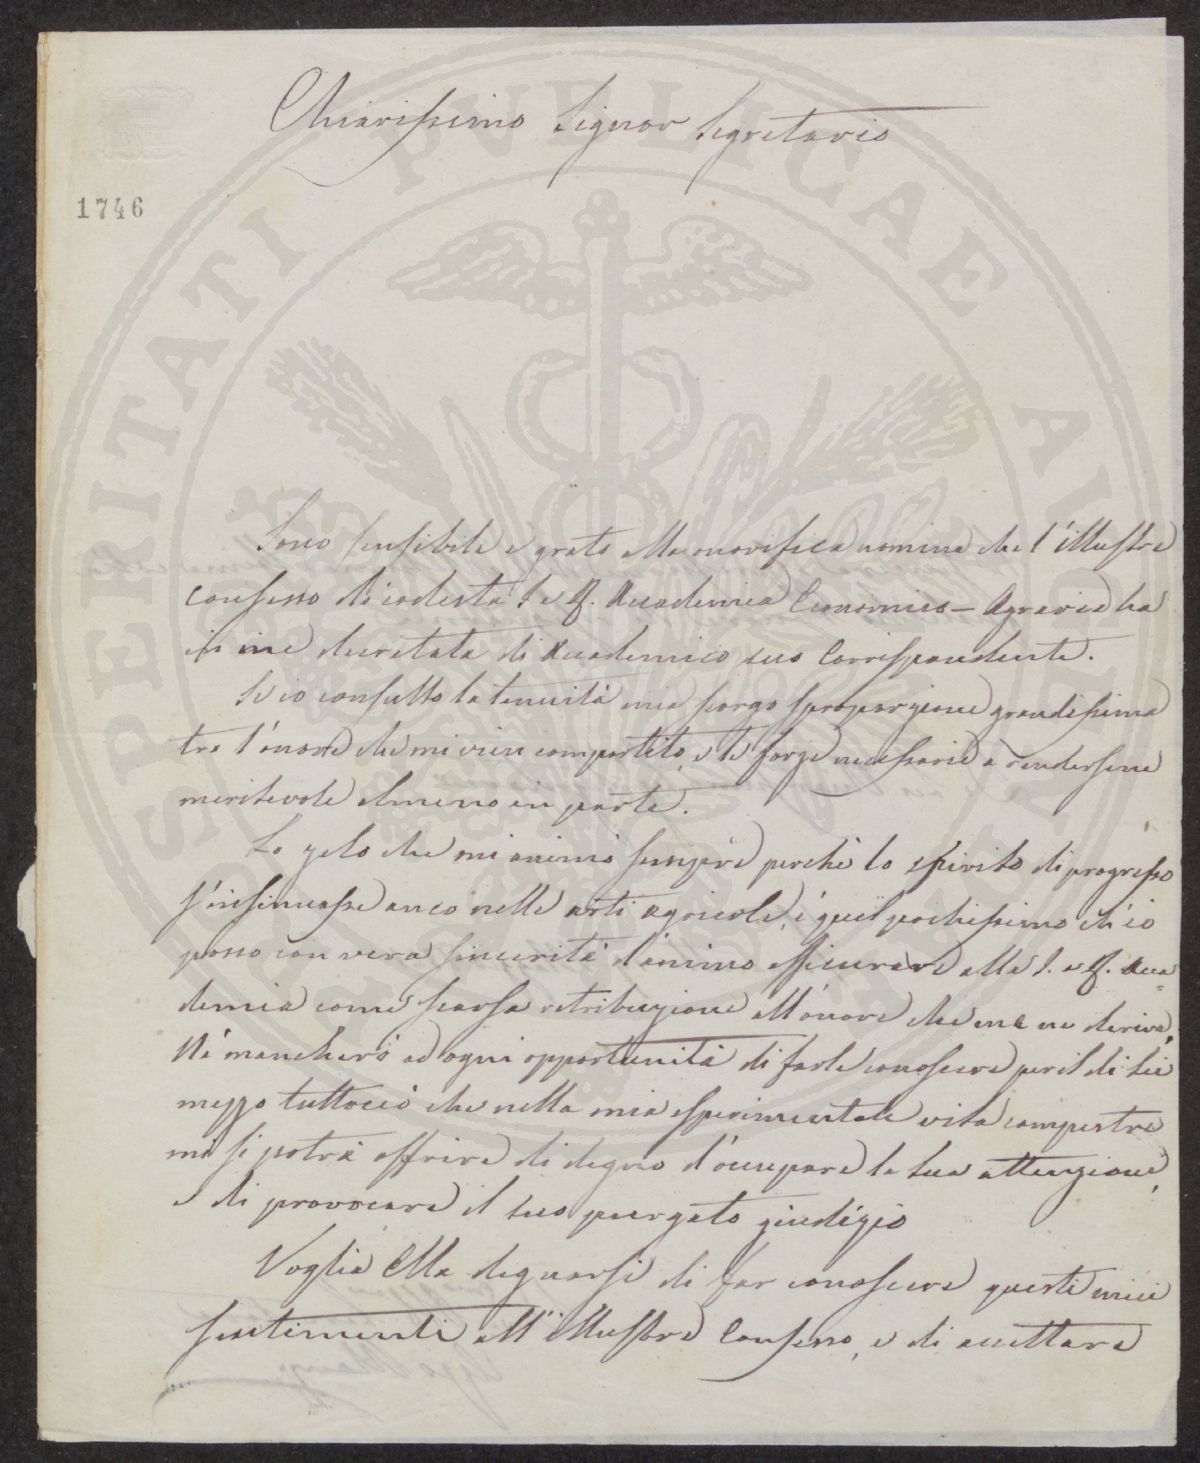 Chiarissimo Signor Segretario
1746
Sono sensibile e grato alla onorifica nomina che l'illustre
Consesso di codesta I. e R. Accademia Economico-Agraria ha
in me decretata di Accademico suo Corrispondente.
Se io consulto la tenuità mia scorgo sproporzione grandissima
tra l'onore che mi vien compartito, e le forze necessarie a rendersene
meritevole almeno in parte.
Lo zelo che mi animò sempre perchè lo spirito di progresso
s'insinuasse anco nelle arti agricole, è quel pochissimo ch'io
posso con vera sincerità d'animo assicurare alla I. e R. Acca=
demia come scarsa retribuzione all'onore che me ne deriva,
Nè mancherò ad ogni opportunità di farle conoscere per il di Lei
mezzo tuttociò che nella mia sperimentale vita campestre
mi si potrà offrire di degno d'occupare la sua attenzione,
e di provocare il suo purgato giudizio
Voglia Ella degnarsi di far conoscere questi miei
sentimenti all'illustre Consesso, e di accettare
SPERITATI PVBLICAE AVG